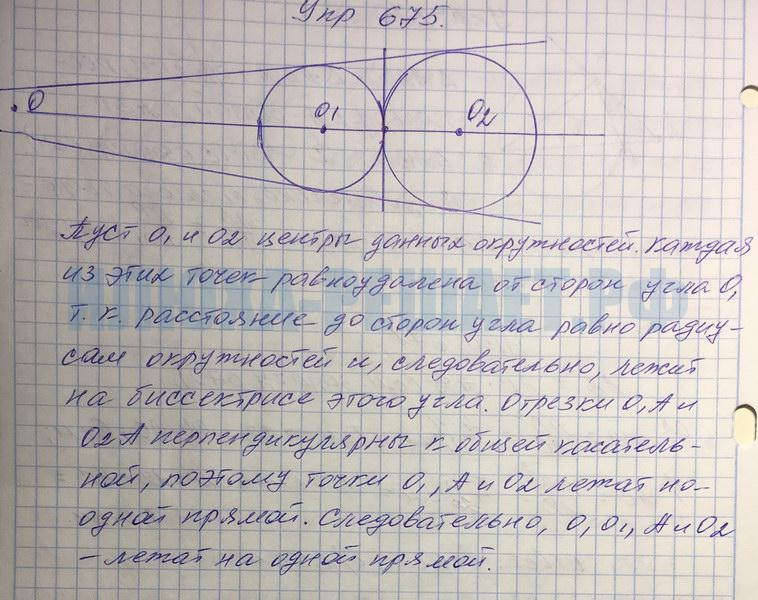 Упр 675.
O
O1
O2
Пуст O1 и O2 центры данных окружностей. Каждая
из этих точек равноудалена от сторон угла O,
т. к. расстояние до сторон угла равно радиу-
сам окружностей и, следовательно, лежат
на биссектрисе этого угла. Отрезки O1A и
O2A перпендикулярны к общей касатель-
ной, поэтому точки O1, A и O2 лежат на
одной прямой. Следовательно, O, O1, A и O2
- лежат на одной прямой.